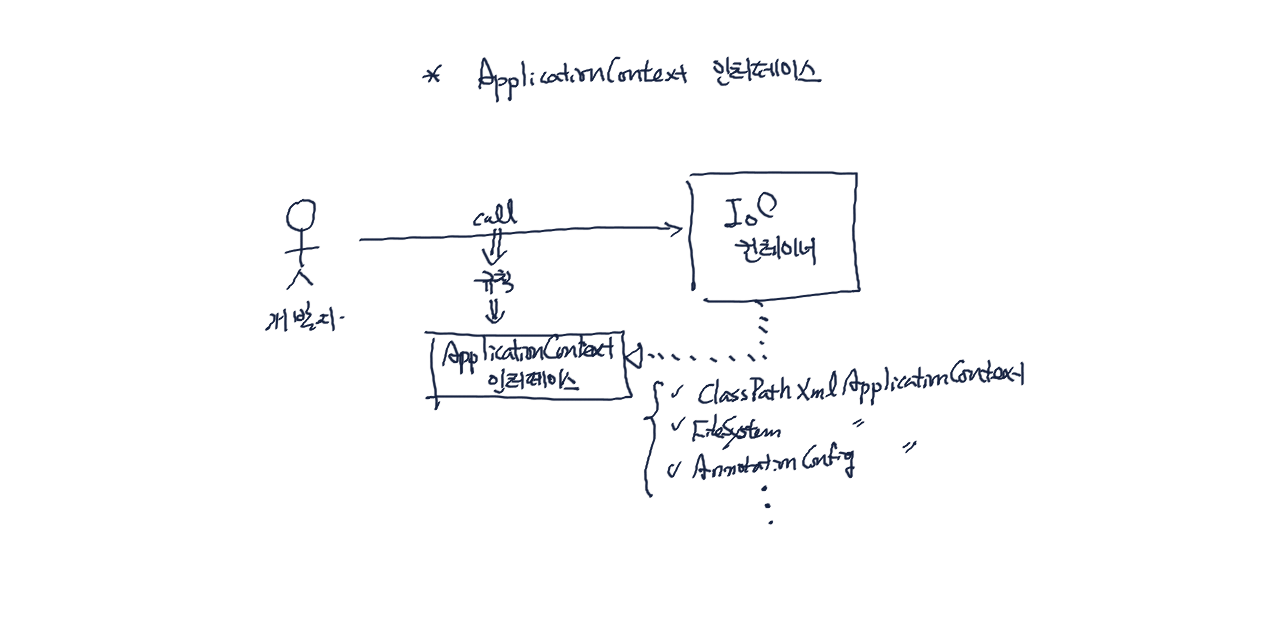 * ApplicationContext 인터페이스
call
IoC
컨테이너
규칙
개발자
ApplicationContext
인터페이스
✓ ClassPathXmlApplicationContext
✓ FileSystem 〃
✓ AnnotationConfig 〃